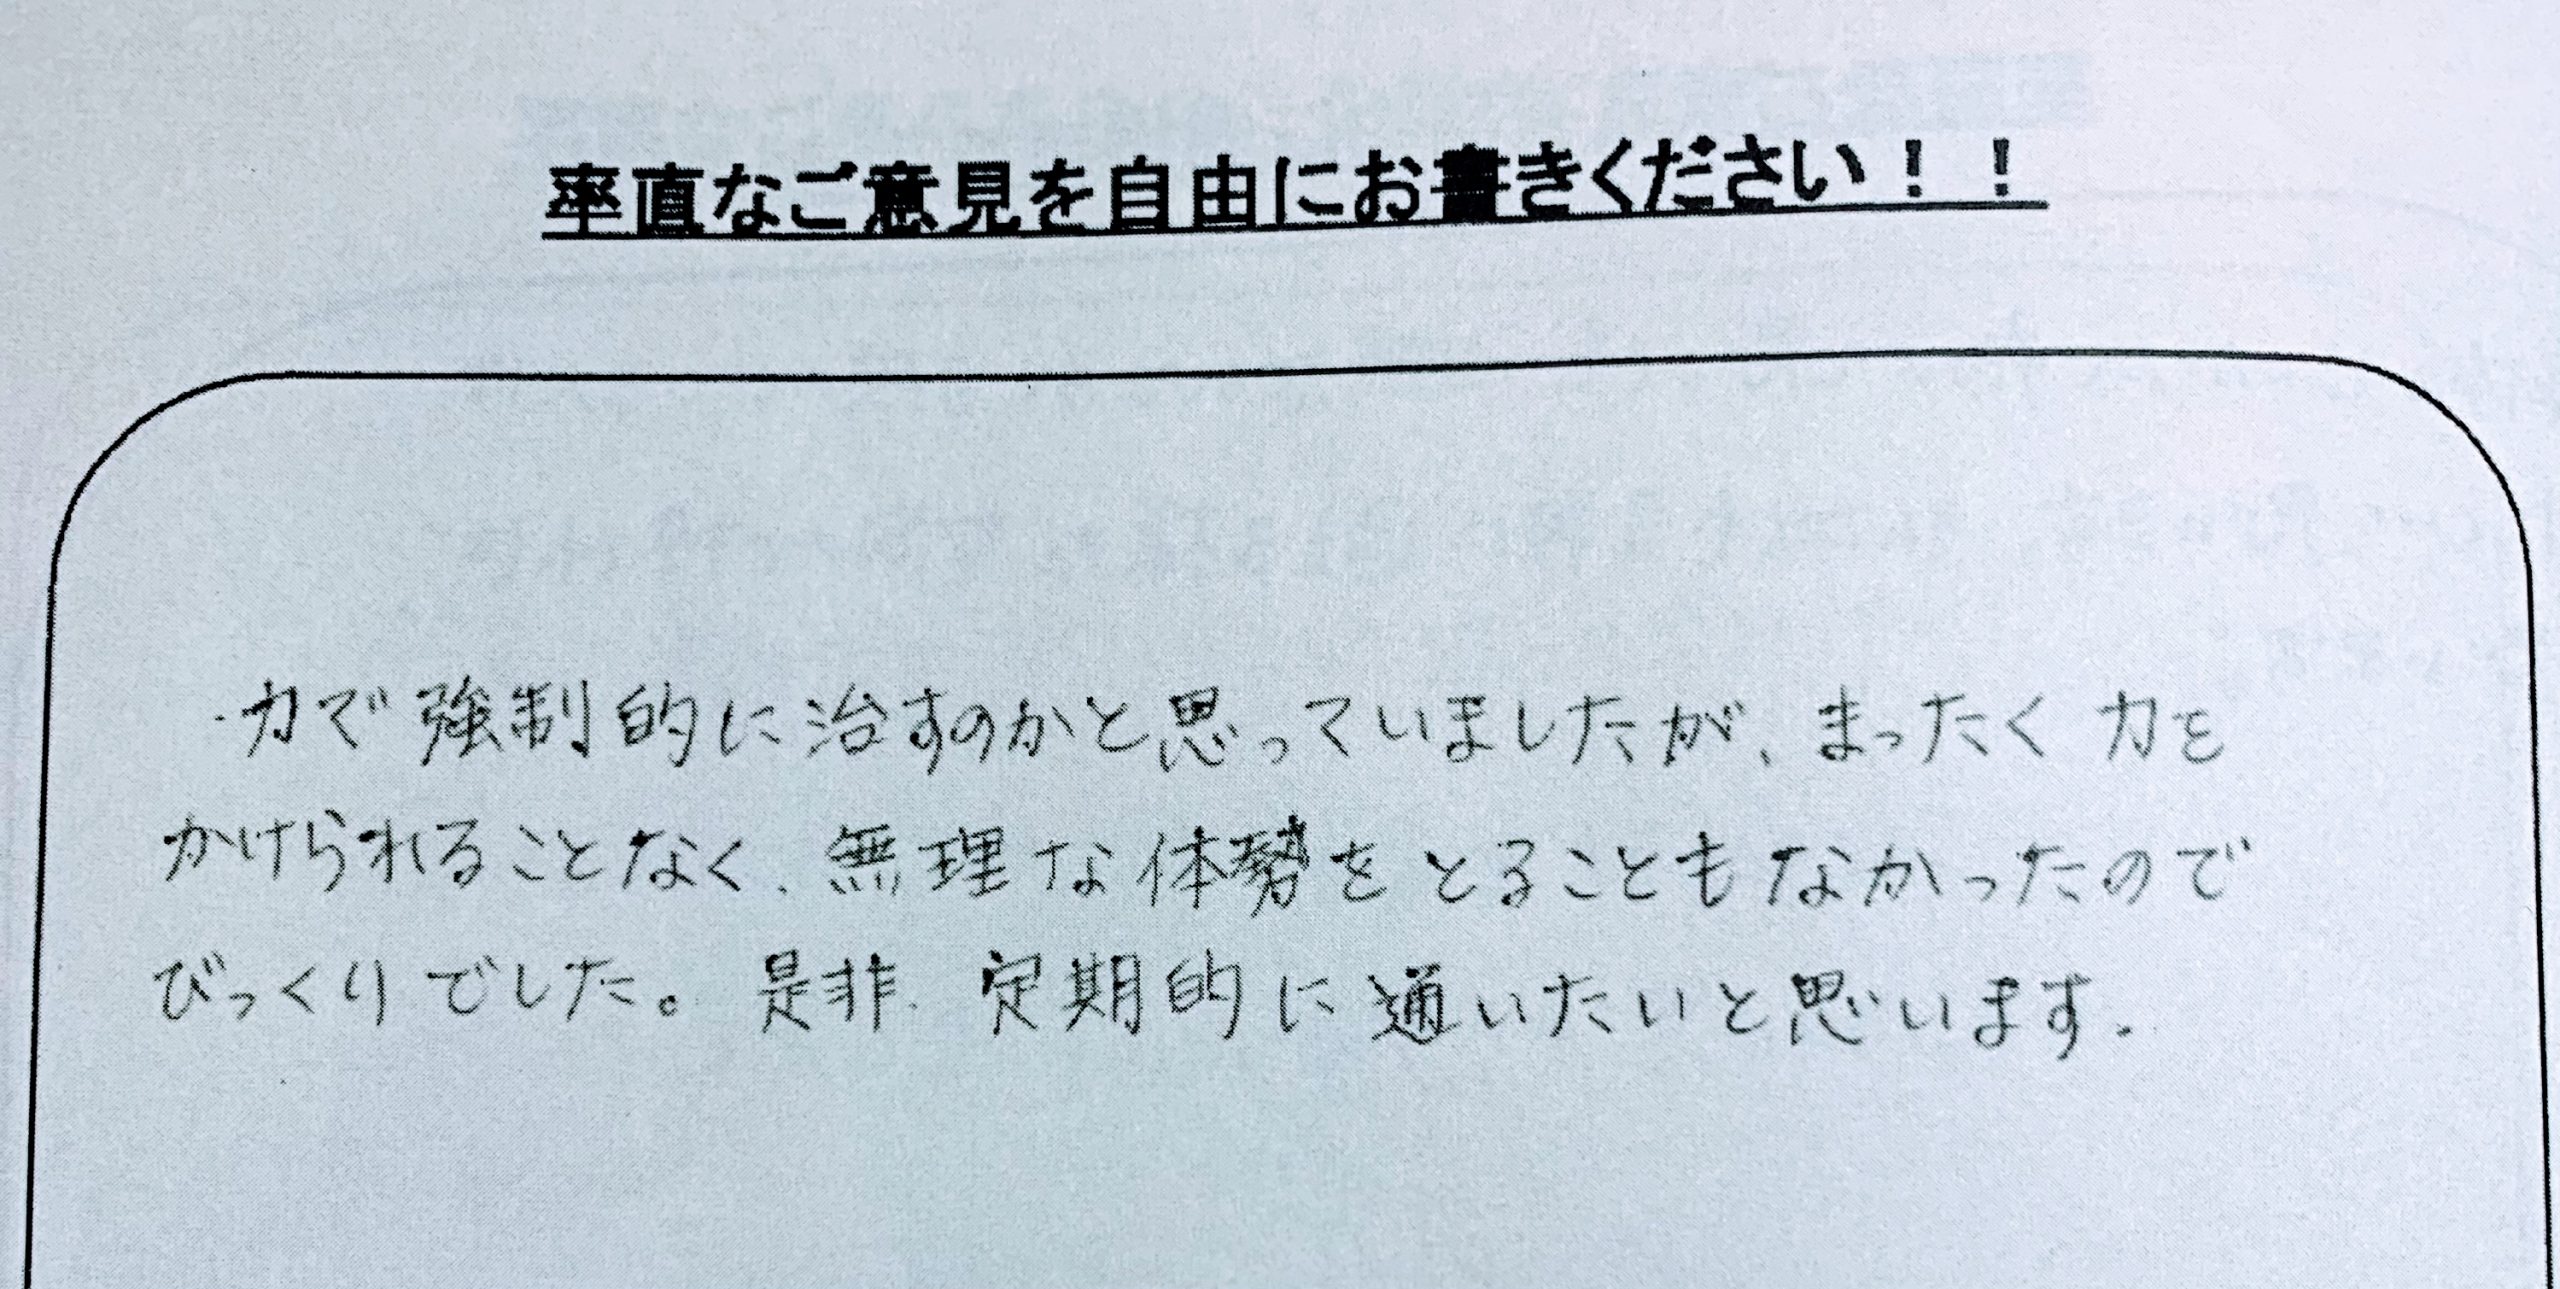 率直なご意見を自由にお書きください！！
・力で強制的に治すのかと思っていましたが、まったく力を
かけられることなく、無理な体勢をとることもなかったので
びっくりでした。是非、定期的に通いたいと思います。